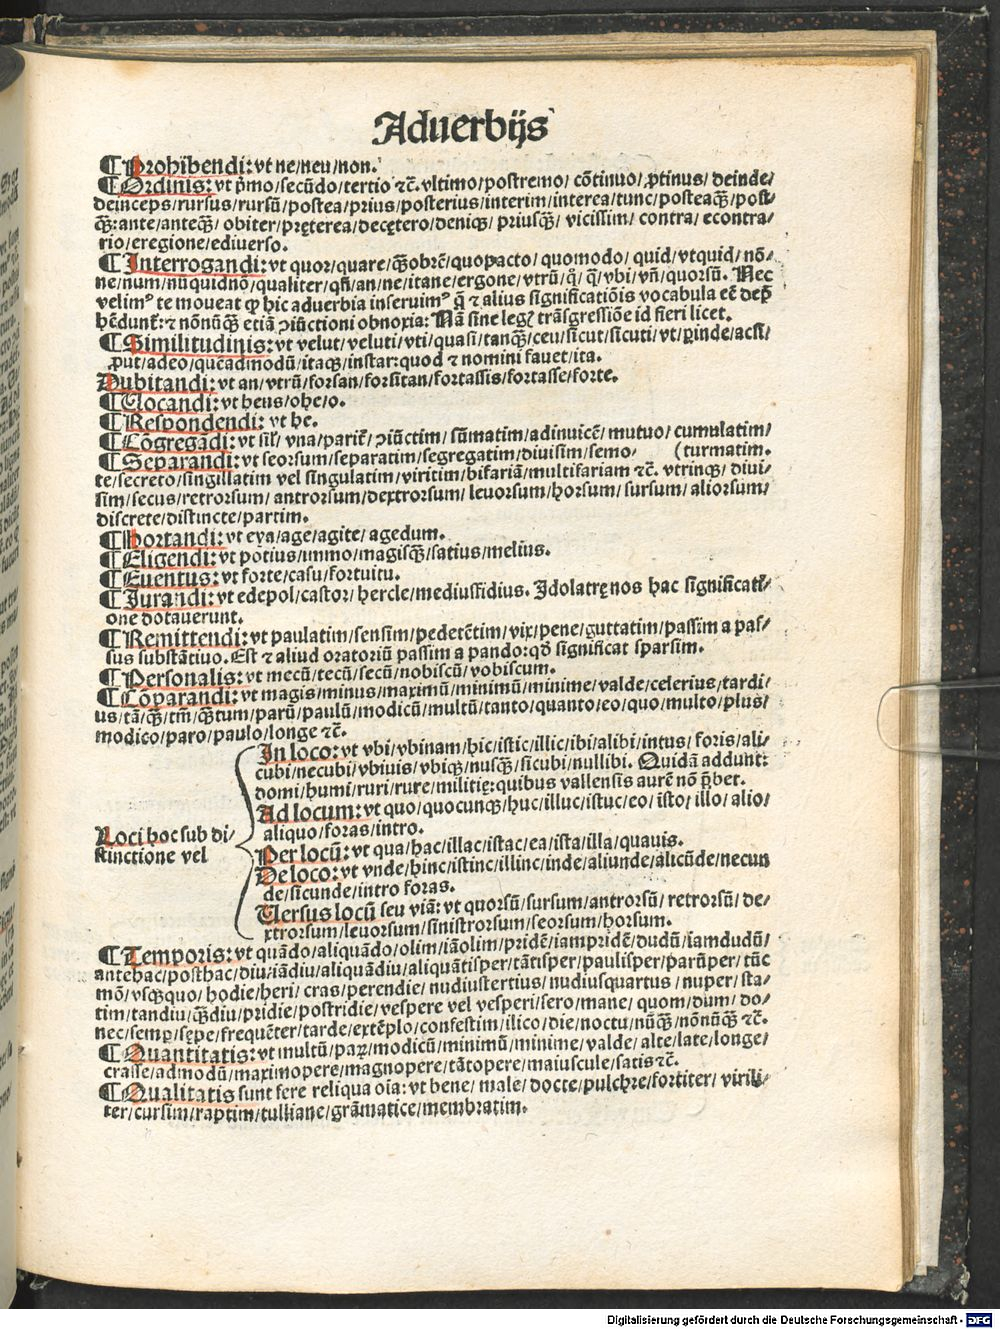 Aduerbijs
¶ Prohibendi: vt ne/neu/non.
¶ Ordinis: vt p̄mo/secūdo/tertio ⁊c̄. vltimo/postremo/ cōtinuo/ ꝓtinus/ deinde/
deinceps/rursus/rursū/postea/prius/posterius/interim/interea/tunc/posteaqȝ/post
qȝ: ante/anteqȝ/ obiter/pręterea/decętero/deniqȝ/ priusqȝ/ vicissim/ contra/ econtra/
rio/eregione/ediuerso.
¶ Interrogandi: vt quor/quare/qȝobrē/quopacto/ quomodo/ quid/ vtquid/ nō/
ne/num/nūquidnō/qualiter/qn̄/an/ne/itane/ergone/vtrū/ vbi/vn̄/quorsū. Nec
velimꝰ te moueat ꝙ hic aduerbia inseruimꝰ q̄ ⁊ alius significatiōis vocabula eē dep̄
hēdunt: ⁊ nōnūqȝ etiā ꝯiūctioni obnoxia: Nā sine legꝭ trāsgressiōe id fieri licet.
¶ Similitudinis: vt velut/ veluti/ vti/ quasi/ tanqȝ/ceu/sicut/sicuti/ vt/ ꝑinde/acsi/
ꝓut/adeo/quēadmodū/itaqȝ/instar: quod ⁊ nomini fauet/ita.
Dubitandi: vt an/ vtrū/forsan/forsitan/fortassis/fortasse/forte.
¶ Vocandi: vt heus/ohe/o.
¶ Respondendi: vt he.
¶ Cōgregādi: vt sil̄/ vna/pariē/ ꝯiūctim/ sūmatim/adinuicē/ mutuo/ cumulatim/
¶ Separandi: vt seorsum/separatim/segregatim/diuisim/semo/ (turmatim.
te/secreto/singillatim vel singulatim/viritim/bifariā/multifariam ⁊c̄. vtrinqȝ/ diui/
sim/secus/retrorsum/ antrorsum/dextrorsum/ leuorsum/horsum/ sursum/ aliorsum/
discrete/distincte/partim.
¶ Hortandi: vt eya/age/agite/ agedum.
¶ Eligendi: vt potius/immo/magisqȝ/satius/melius.
¶ Euentus: vt forte/casu/fortuitu.
¶ Jurandi: vt edepol/castor/ hercle/mediusfidius. Idolatrę nos hac significati/
one dotauerunt.
¶ Remittendi: vt paulatim/sensim/pedetētim/vix/pene/guttatim/passim a pas/
sus substātiuo. Est ⁊ aliud oratoriū passim a pando: qd̄ significat sparsim.
¶ Personalis: vt mecū/tecū/secū/nobiscū/vobiscum.
¶ Cōparandi: vt magis/minus/maximū/minimū/minime/valde/celerius/tardi/
us/tā/qȝ/tm̄/qȝtum/parū/paulū/modicū/multū/tanto/quanto/eo/quo/multo/plus/
modico/paro/paulo/longe ⁊c̄.
Loci hoc sub di/
stinctione vel
In loco: vt vbi/vbinam/hic/istic/illic/ibi/alibi/intus/ foris/ali/
cubi/necubi/vbiuis/vbiqȝ/nusqȝ/sicubi/nullibi. Quidā addunt:
domi/humi/ruri/rure/militię: quibus vallensis aurē nō p̄bet.
Ad locum: vt quo/quocunqȝ/huc/illuc/istuc/eo/ isto/ illo/ alio/
aliquo/foras/intro.
Per locū: vt qua/hac/illac/istac/ea/ista/illa/quauis.
De loco: vt vnde/hinc/istinc/illinc/inde/aliunde/alicūde/necun
de/sicunde/intro foras.
Versus locū seu viā: vt quorsū/sursum/antrorsū/ retrorsū/ de/
xtrorsum/leuorsum/sinistrorsum/seorsum/horsum.
¶ Temporis: vt quādo/aliquādo/olim/iāolim/pridē/iampridē/dudū/iamdudū/
antehac/posthac/diu/iādiu/aliquādiu/aliquātisper/tātisper/paulisper/parūper/ tūc
mō/vsqȝquo/ hodie/heri/ cras/perendie/ nudiustertius/ nudiusquartus/ nuper/ sta/
tim/tandiu/qȝdiu/pridie/postridie/vespere vel vesperi/sero/mane/ quom/dum/ do/
nec/semꝑ/sępe/frequēter/tarde/extēplo/confestim/ilico/die/noctu/nūqȝ/nōnūqȝ ⁊c̄.
¶ Quantitatis: vt multū/ parꝝ/modicū/minimū/minime/ valde/ alte/late/longe/
crasse/admodū/maximopere/magnopere/tātopere/maiuscule/satis ⁊c̄.
¶ Qualitatis sunt fere reliqua oīa: vt bene/ male/ docte/pulchre/fortiter/ virili/
ter/cursim/raptim/tulliane/grāmatice/membratim.
Digitalisierung gefördert durch die Deutsche Forschungsgemeinschaft - DFG